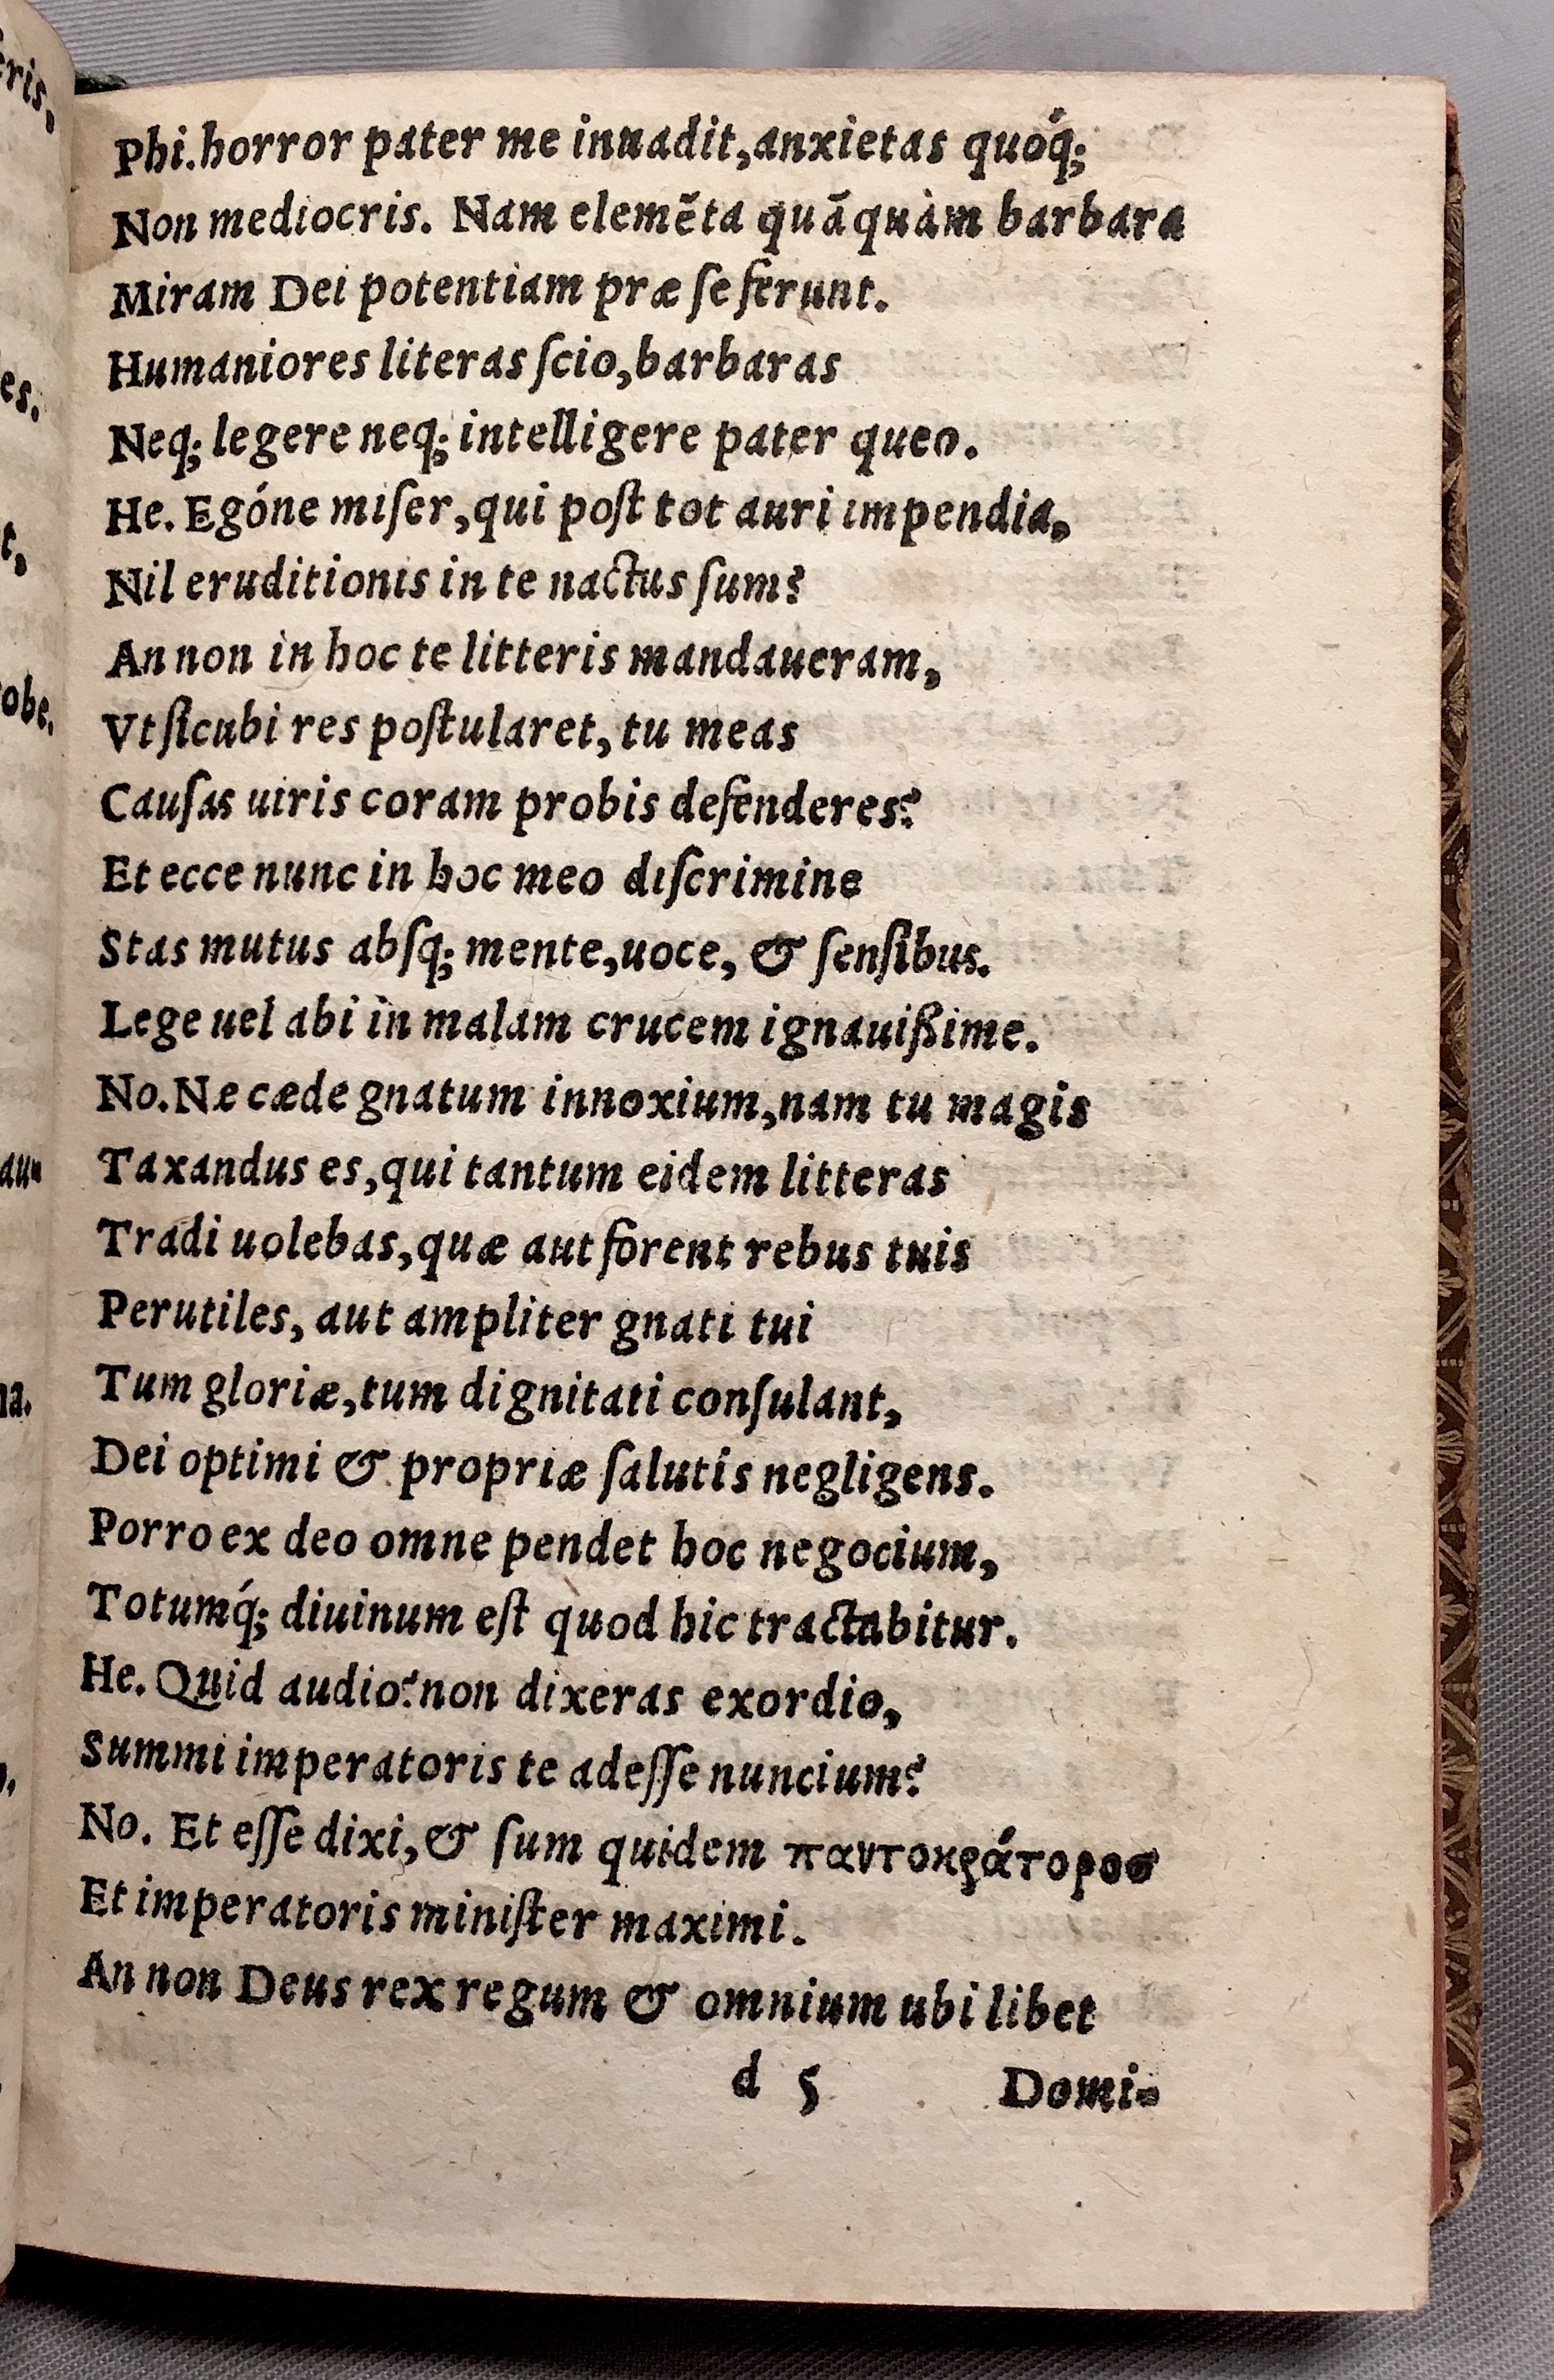 Phi.horror pater me inuadit,anxietas quóq;
Non mediocris. Nam elemẽta quãquàm barbara
Miram Dei potentiam præ ſe ferunt.
Humaniores literas ſcio,barbaras
Neq; legere neq; intelligere pater queo.
He. Egóne miſer,qui poſt tot auri impendia,
Nil eruditionis in te nactus ſum?
An non in hoc te litteris mandaueram,
Vt ſicubi res poſtularet,tu meas
Cauſas uiris coram probis defenderes?
Et ecce nunc in hoc meo diſcrimine
Stas mutus abſq; mente,uoce, & ſenſibus.
Lege uel abi in malam crucem ignauißime.
No.Næ cæde gnatum innoxium,nam tu magis
Taxandus es,qui tantum eidem litteras
Tradi uolebas,quæ aut forent rebus tuis
Perutiles, aut ampliter gnati tui
Tum gloriæ,tum dignitati conſulant,
Dei optimi & propriæ ſalutis negligens.
Porro ex deo omne pendet hoc negocium,
Totumq́; diuinum eſt quod hic tractabitur.
He. Quid audio?non dixeras exordio,
Summi imperatoris te adeſſe nuncium?
No. Et eſſe dixi,& ſum quidem παντοκράτοροσ
Et imperatoris miniſter maximi.
An non Deus rex regum & omnium ubi libet
d 5 Domi-